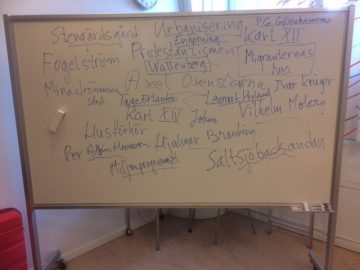 Stengårdsgård Urbanisering P.G. Gyllenhammar
Enhörning Karl XII
Fogelström Protestantismen Migranternas
Wallenberg hus
Mina drömmars Axel Oxenstierna Ivar Kruger
stad Tage Erlander Lennart Hyland
Karl XIV Johan Vilhelm Moberg
Husförhör
Per Albin Hansson Hjalmar Branting
Miljonprogrammet Saltsjöbadsandan